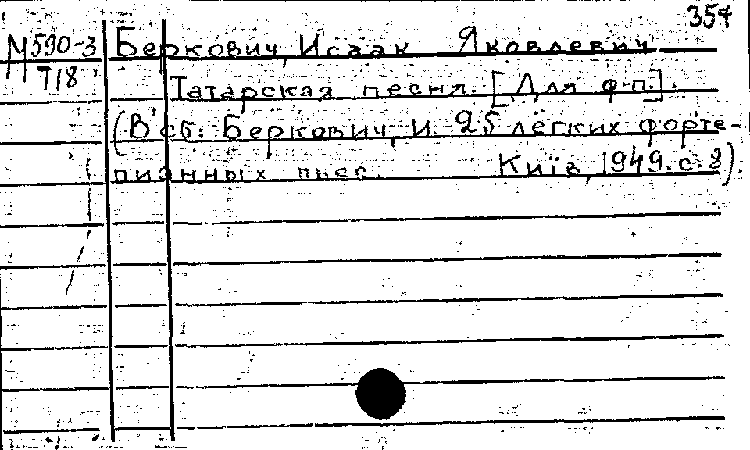 354
М590-3 Беркович, Исаак Яковлевич
Т/8
Татарская песня. [Для ф-п].
(В сб: Беркович, И. 25 легких форте-
пианных пьес. Київ, 1949. с. 8).